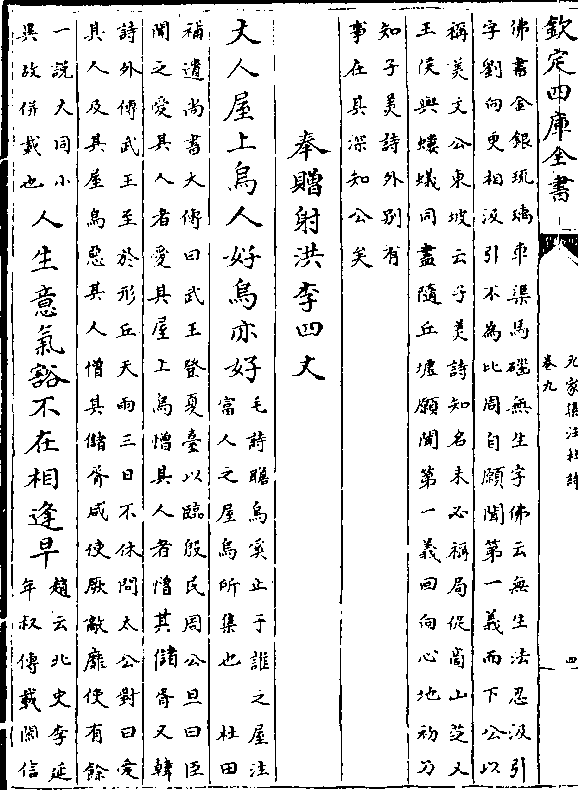 欽定四庫全書
九家集注杜詩
卷九
四
佛書金銀琉璃車渠馬磂無生字佛云無生法忍汲引
字劉向更相汲引不為比周自願聞第一義而下公以
稱美文公東坡云子美詩知名未必稱局促商山芝又
王侯與螻蟻同盡隨丘墟願聞第一義回向心地初乃
知子美詩外別有
事在其深知公矣
奉贈射洪李四丈
丈人屋上烏人好烏亦好
毛詩瞻烏爰止于誰之屋注
富人之屋烏所集也 杜田
補遺尚書大傳曰武王登夏臺以臨殷民周公旦曰臣
聞之愛其人者愛其屋上烏憎其人者憎其儲胥又韓
詩外傳武王至於形丘天雨三日不休問太公對曰愛
其人及其屋烏惡其人憎其儲胥咸使厥敵靡使有餘
一說大同小
異故併載也
人生意氣豁不在相逢早
趙云北史李延
年叔傳載閻信